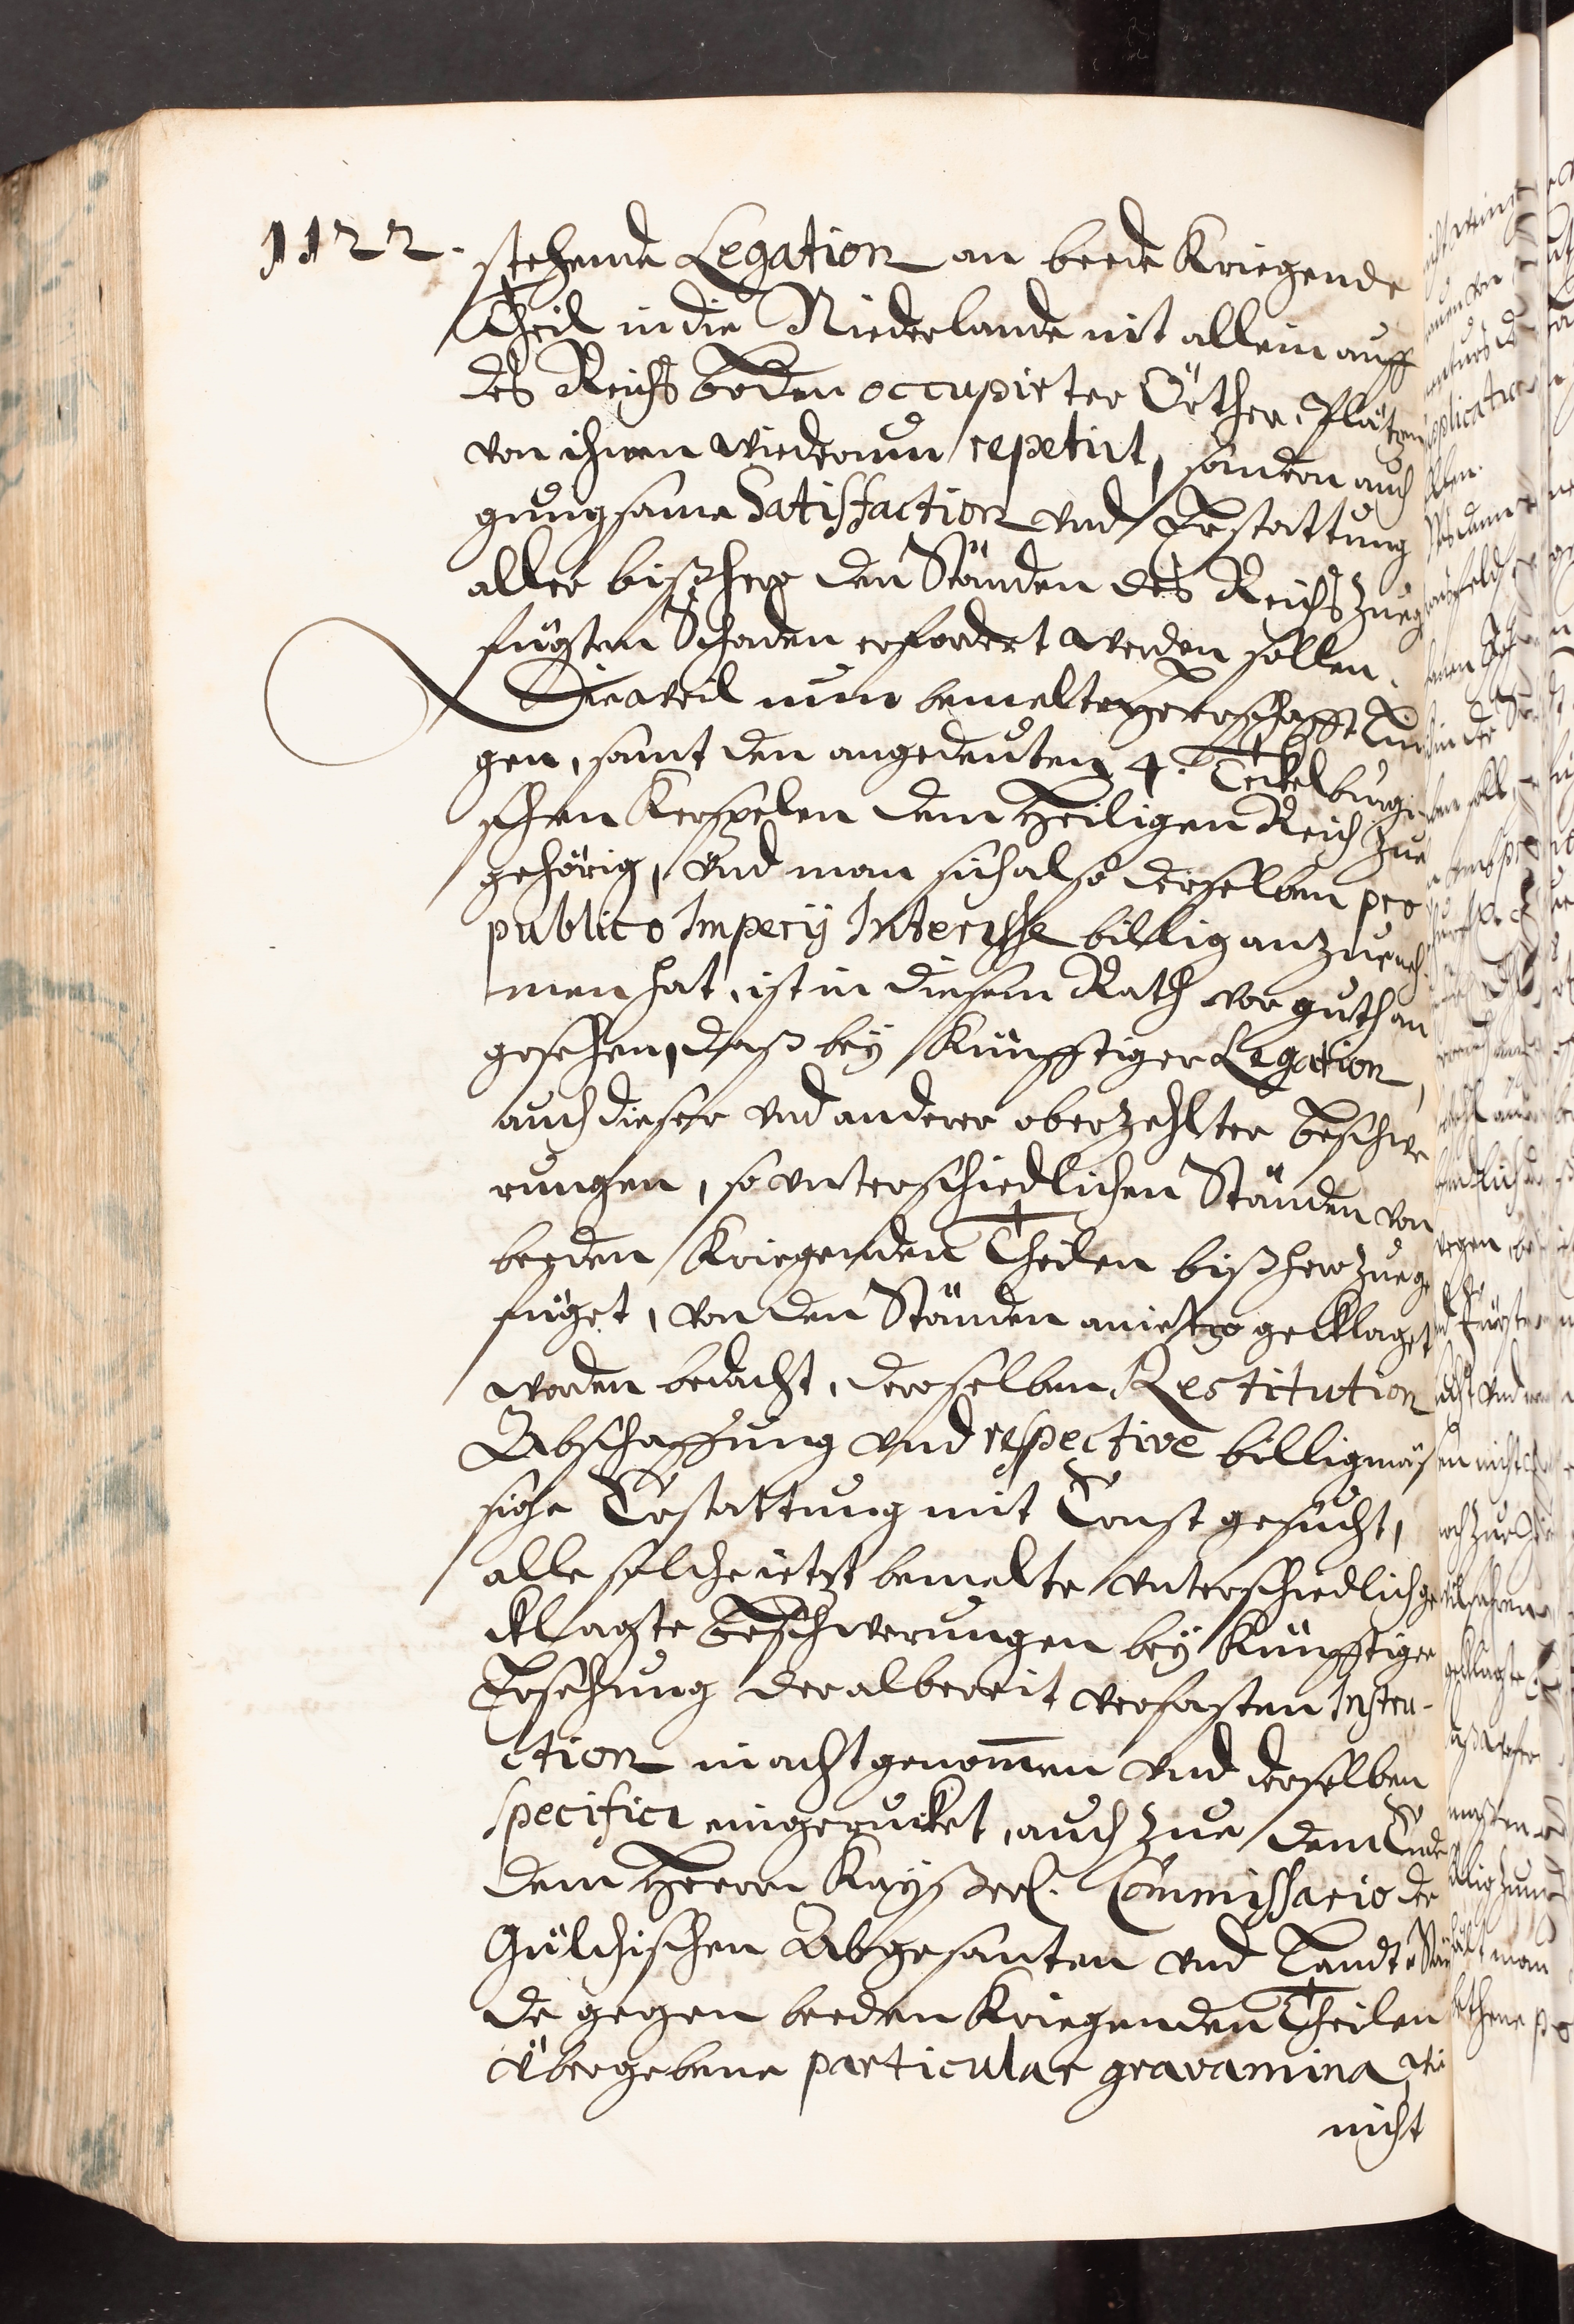 1122.
stehende Legation an beede Kriegende
Theil in die Niederlande nit allein auff
des Reichs boden occupirter Örther, Plätzen
von ihnen wiederumb repetirt, sondern auch
gnungsame Satisfaction vnd Erstattung
aller bißhero den Ständen des Reichs zuege
fügten Schaden erfordert werden sollen.
Dieweil nun bemelte Herrschafft Lin
gen, samt den angedeuten 4. Teckelburgi
schen Kerspelen dem Heiligen Reich zue
gehörig, vnd man sich also derselben pro
publico Imperij Interesse billig anzueneh
men hat, ist in diesem Rath vor guth an
gesehen, daß bey künfftiger Legation,
auch dieser vnd anderer oberzehlter beschwe
rungen, so vnterschiedlichen Ständen von
beeden Kriegenden Theilen bißhero zuege
füget, von den Ständen anietzo geklaget
worden bedacht, deroselben Restitution
Abschaffung vnd respective billigmäs
sige Erstattung mit Ernst gesucht,
alle solche ietzt bemelte vnterschiedlich ge
klagte beschwerungen bey künfftiger
Ersehung der albereit verfasten Instru-
ction in acht genommen vnd derselben
specificè eingerucket, auch zue dem Ende
dem Herrn Kayßerl. Commissario der
Gülchischen Abgesanten vnd Landt Stän
de gegen beeden Kriegenden Theilen
übergebene particular gravamina, wie
nicht